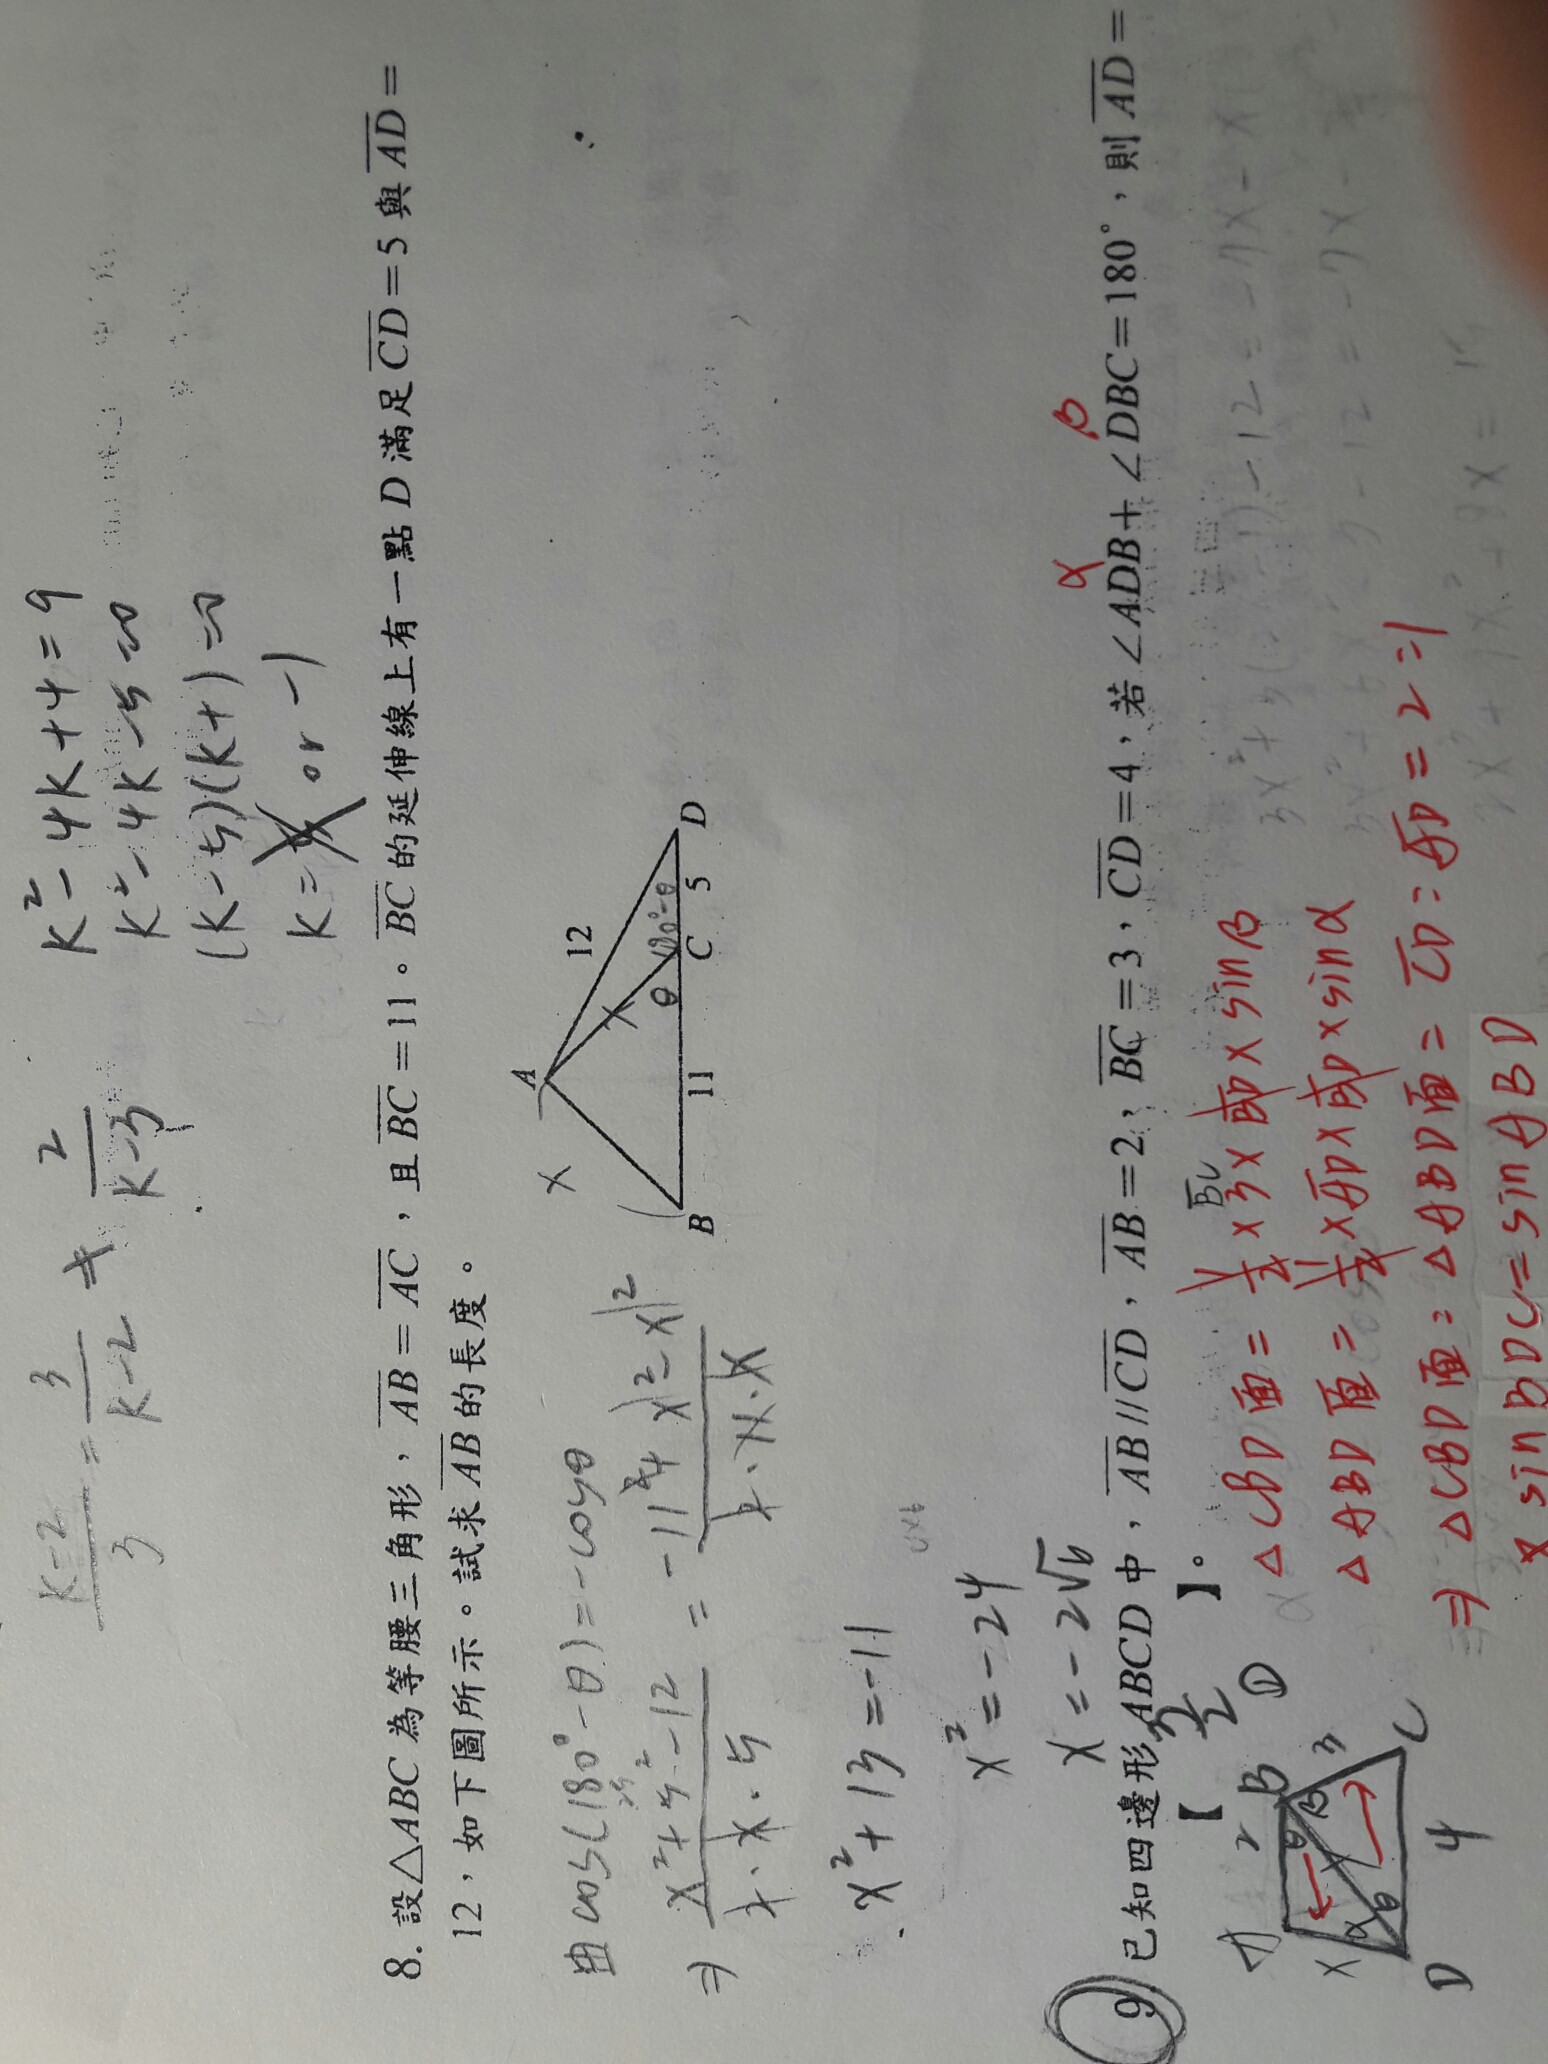 K²-4K+4=9
K²-4K-5=0
(K-5)(K+1)=0
K=5 or -1
K-2/3 = 3/K-2 ≠ 2/K-3
8. 設△ABC 為等腰三角形，AB=AC，且 BC=11。BC 的延伸線上有一點 D 滿足 CD=5 與 AD=
12，如下圖所示。試求 AB 的長度。
A
12
X
X
θ
180°-θ
B
11
C
5
D
由 cos(180°-θ)=-cosθ
⇒ x²+5²-12/2·x·5 = -11²+x²-x²/2·11·x
x²+13=-11
x²=-24
x=-2√6
α
β
9. 已知四邊形 ABCD 中，AB//CD，AB=2，BC=3，CD=4，若∠ADB+∠DBC=180°，則 AD=
【 3/2 】。
A
2
B
D
X
θ
β
3
α
θ
D
4
C
△CBD面=1/2×3×BD×sinβ
BC
△ABD面=1/2×AD×BD×sinα
⇒ △CBD面:△ABD面=CD:AD=2=1
× sinBDC=sinABD